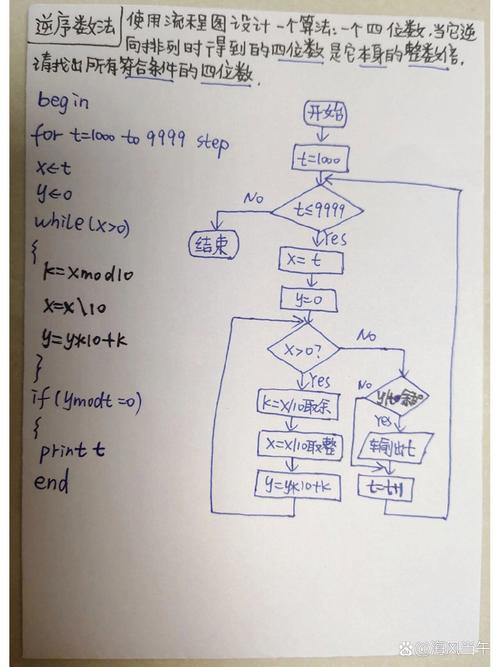 逆序数法 使用流程图设计一个算法:一个四位数,当它逆
向排列时得到的四位数是它本身的整数倍,
请找出所有符合条件的四位数.
begin
for t=1000 to 9999 step
x←t
y←0
while(x>0)
{
k=xmod10
x=x\10
y=y*10+k
}
if(ymodt=0)
{
print t
end
开始
t=1000
t≤9999
No
结束
Yes
x=t
y=0
x>0?
No
Yes
k=x/10取余
x=x/10取整
y=y*10+k
No
Yes
输出t
t=t+1
海风当午